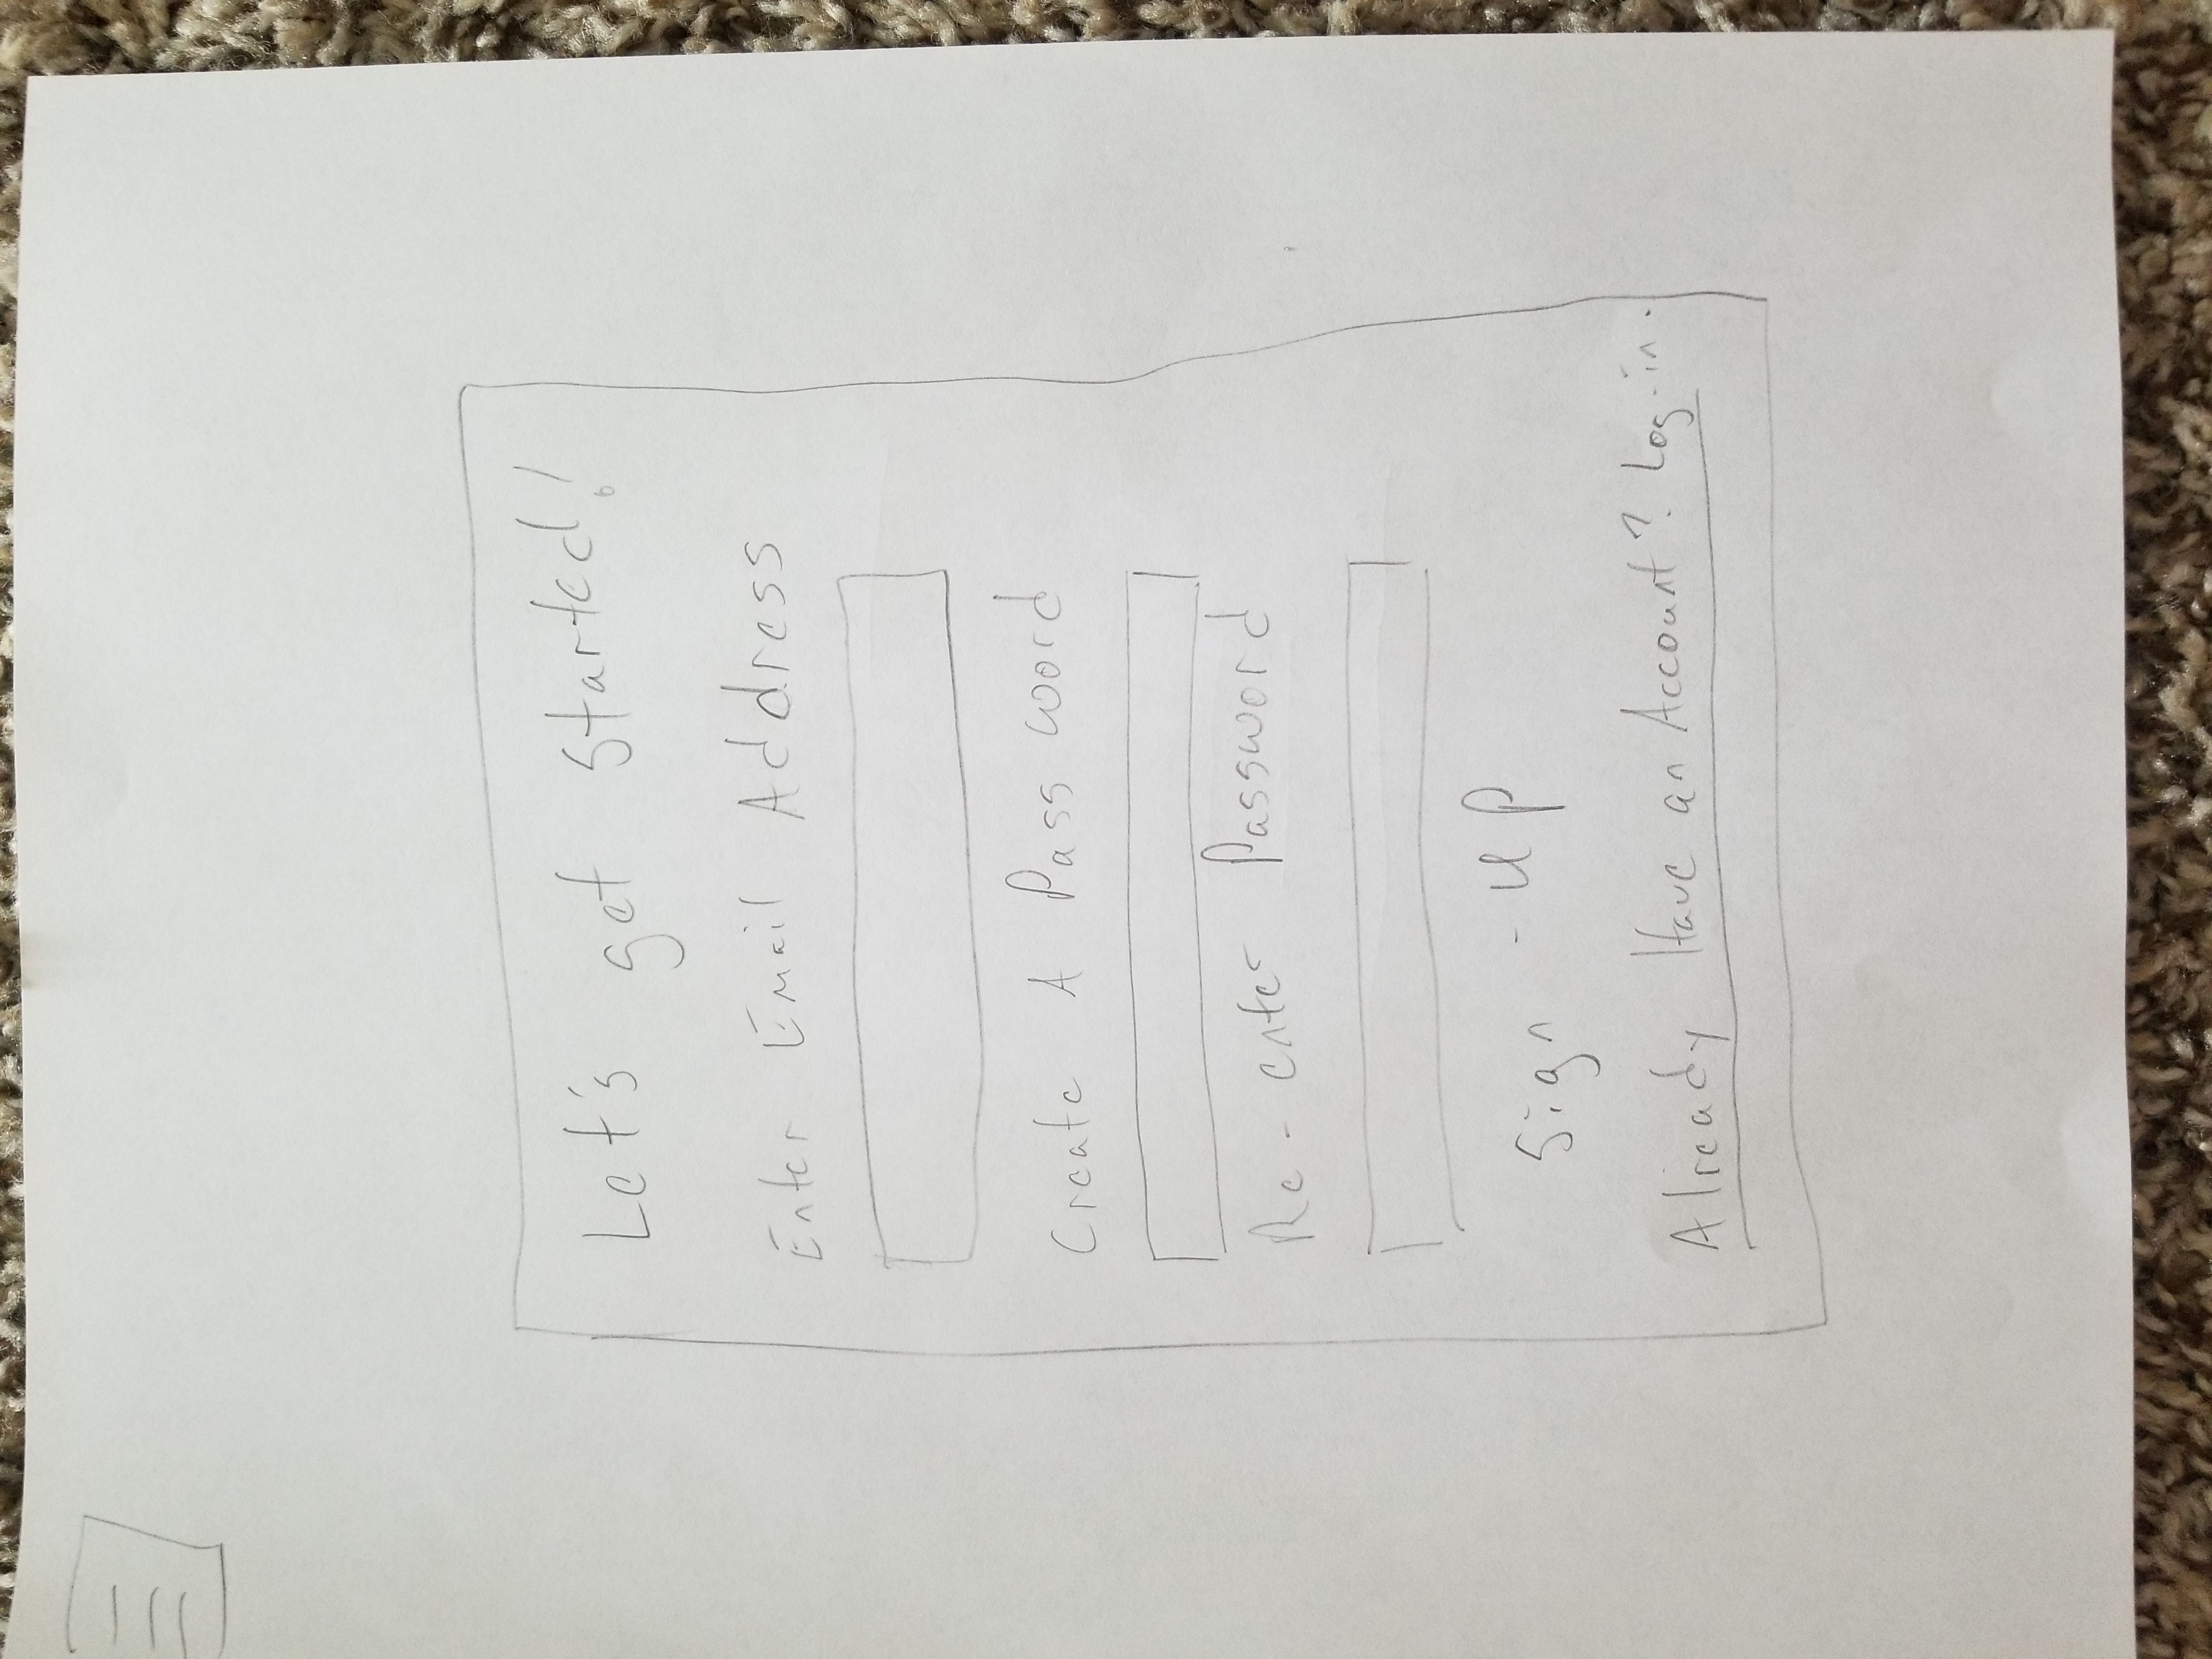 Let's get Started!
Enter Email Address
Create A Password
Re-enter Password
Sign-up
Already Have an Account? Log-in.